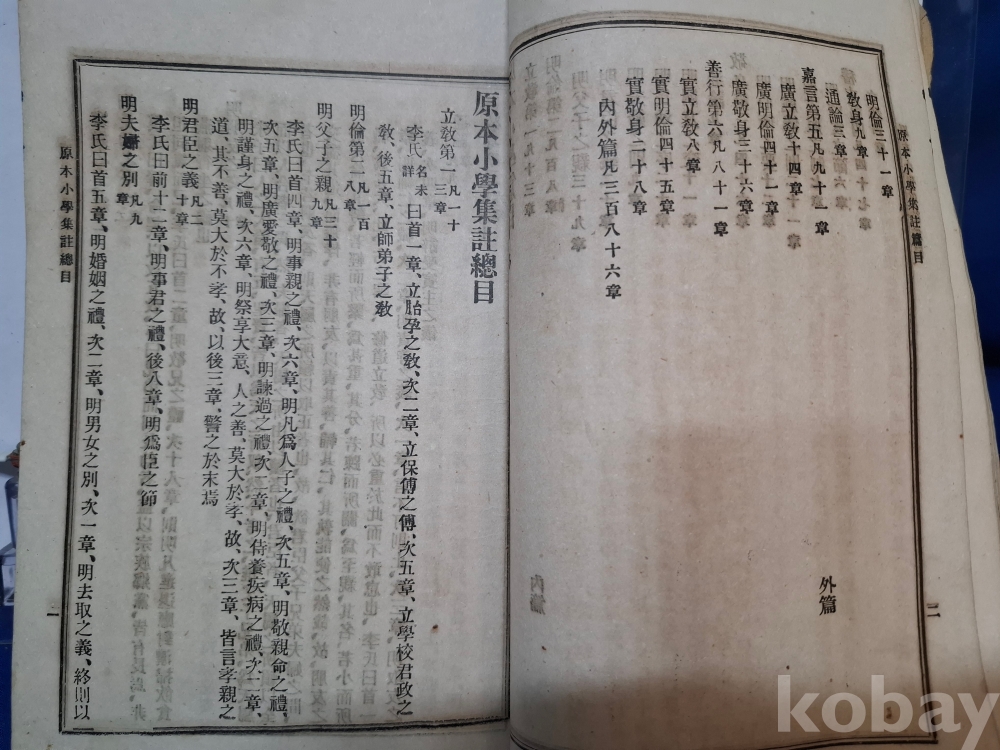 明倫三十一章
敬身九章
通論三章
嘉言第五凡九十一章
廣立教十四章
廣明倫四十一章
廣敬身三十六章
善行第六凡八十一章
實立教八章
實明倫四十五章
實敬身二十八章
內外篇凡三百八十六章
外篇
二
原本小學集註總目
原本小學集註總目
立敎第一凡一十三章
李氏名未詳曰首一章、立胎孕之敎、次二章、立保傅之傅、次五章、立學校君政之
敎、後五章、立師弟子之敎
明倫第二凡一百八章
明父子之親凡三十九章
李氏曰首四章、明事親之禮、次六章、明凡爲人子之禮、次五章、明敬親命之禮、
次五章、明廣愛敬之禮、次三章、明諫過之禮、次二章、明侍養疾病之禮、次二章、
明謹身之禮、次六章、明祭享大意、人之善、莫大於孝、故、次三章、皆言孝親之
道、其不善、莫大於不孝、故、以後三章、警之於末焉
明君臣之義凡二十章
李氏曰前十二章、明事君之禮、後八章、明爲臣之節
明夫婦之別凡九
李氏曰首五章、明婚姻之禮、次二章、明男女之別、次一章、明去取之義、終則以
原本小學集註總目
一
kobay